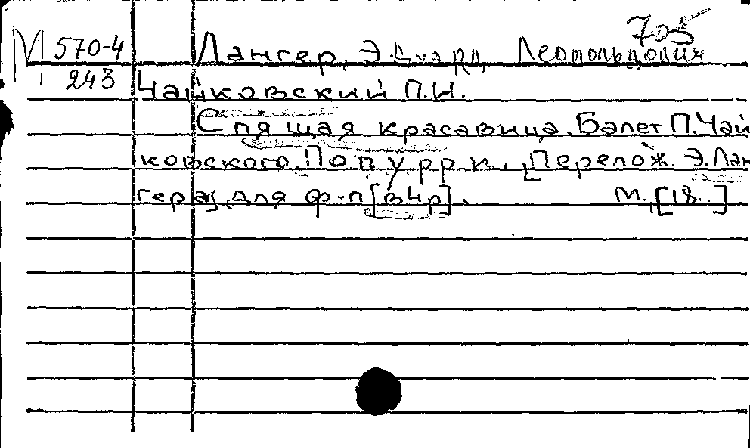 705
М 570-4 Лангер, Эдуард Леопольдович
243 Чайковский П.И.
Спящая красавица. Балет П.Чай
ковского. Попурри. [Перелож. Э.Лан
гера] для ф-п [в4р]. М., [18..]